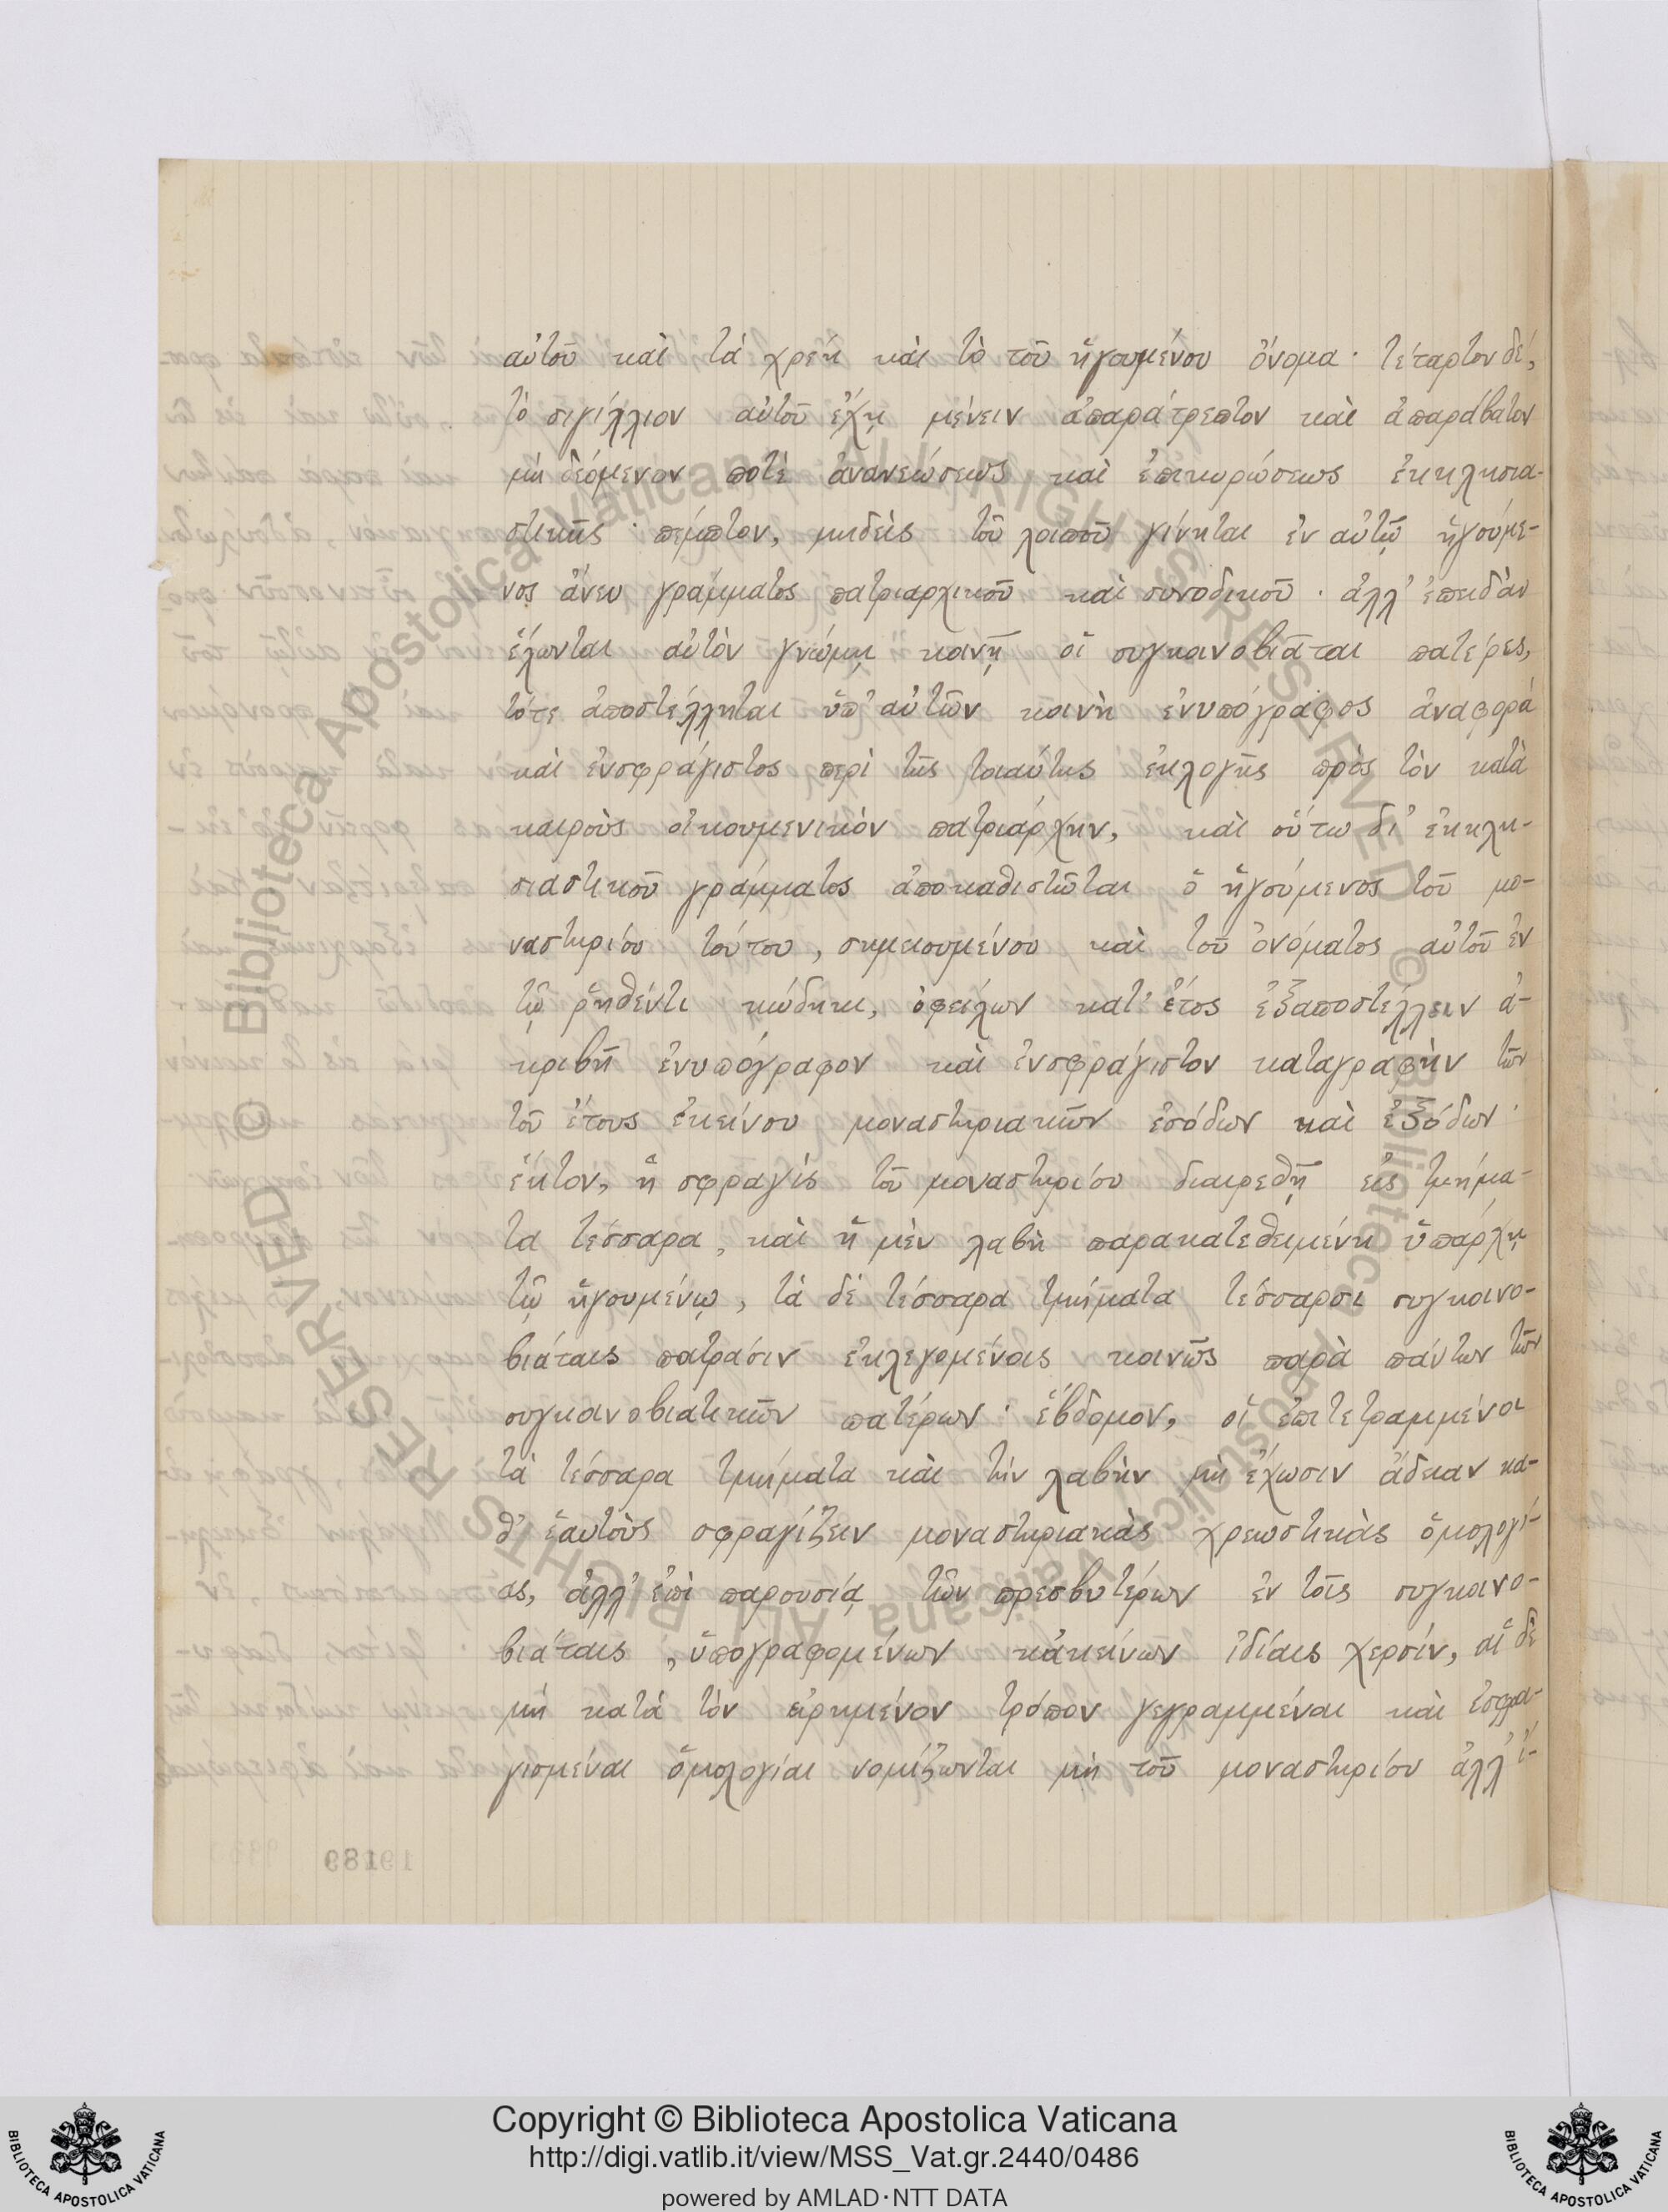 αὐτοῦ καὶ τὰ χρέη καὶ τὸ τοῦ ἡγουμένου ὄνομα· τέταρτον δέ,
τὸ σιγίλλιον αὐτοῦ ἔχῃ μένειν ἀπαράτρεπτον καὶ ἀπαράβατον
μὴ δεόμενον ποτὲ ἀνανεώσεως καὶ ἐπικυρώσεως ἐκκλησια-
στικῆς· πέμπτον, μηδεὶς τοῦ λοιποῦ γίνηται ἐν αὐτῷ ἡγούμε-
νος ἄνευ γράμματος πατριαρχικοῦ καὶ συνοδικοῦ· ἀλλ' ἐπειδὰν
ἕλωνται αὐτὸν γνώμῃ κοινῇ οἱ συγκοινοβιᾶται πατέρες,
τότε ἀποστέλληται ὑπ' αὐτῶν κοινὴ ἐνυπόγραφος ἀναφορὰ
καὶ ἐνσφράγιστος περὶ τῆς τοιαύτης ἐκλογῆς πρὸς τὸν κατὰ
καιροὺς οἰκουμενικὸν πατριάρχην, καὶ οὕτω δι' ἐκκλη-
σιαστικοῦ γράμματος ἀποκαθιστῶται ὁ ἡγούμενος τοῦ μο-
ναστηρίου τούτου, σημειουμένου καὶ τοῦ ὀνόματος αὐτοῦ ἐν
τῷ ῥηθέντι κώδηκι, ὀφείλων κατ' ἔτος ἐξαποστέλλειν ἀ-
κριβῆ ἐνυπόγραφον καὶ ἐνσφράγιστον καταγραφὴν τῶν
τοῦ ἔτους ἐκείνου μοναστηριακῶν ἐσόδων καὶ ἐξόδων·
ἕκτον, ἡ σφραγὶς τοῦ μοναστηρίου διαιρεθῇ εἰς τμήμα-
τα τέσσαρα, καὶ ἡ μὲν λαβὴ παρακατεθειμένη ὑπάρχῃ
τῷ ἡγουμένῳ, τὰ δὲ τέσσαρα τμήματα τέσσαρσι συγκοινο-
βιάταις πατράσιν ἐκλεγομένοις κοινῶς παρὰ πάντων τῶν
συγκοινοβιατικῶν πατέρων· ἕβδομον, οἱ ἐπιτετραμμένοι
τὰ τέσσαρα τμήματα καὶ τὴν λαβὴν μὴ ἔχωσιν ἄδειαν κα-
θ' ἑαυτοὺς σφραγίζειν μοναστηριακὰς χρεωστικὰς ὁμολογί-
ας, ἀλλ' ἐπὶ παρουσίᾳ τῶν πρεσβυτέρων ἐν τοῖς συγκοινο-
βιάταις, ὑπογραφομένων κἀκείνων ἰδίαις χερσίν, αἱ δὲ
μὴ κατὰ τὸν εἰρημένον τρόπον γεγραμμέναι καὶ ἐσφρα-
γισμέναι ὁμολογίαι νομίζωνται μὴ τοῦ μοναστηρίου ἀλλ' ἰ-
© Biblioteca Apostolica Vaticana ALL RIGHTS RESERVED
© Biblioteca Apostolica Vaticana ALL RIGHTS RESERVED
Copyright © Biblioteca Apostolica Vaticana
http://digi.vatlib.it/view/MSS_Vat.gr.2440/0486
powered by AMLAD·NTT DATA
BIBLIOTECA APOSTOLICA VATICANA
BIBLIOTECA APOSTOLICA VATICANA